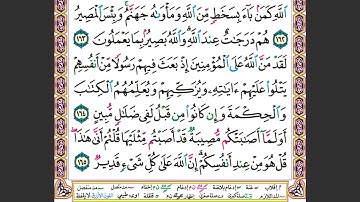 اللَّهِ كَمَنۢ بَآءَ بِسَخَطٍ مِّنَ اللَّهِ وَمَأْوَىٰهُ جَهَنَّمُ وَبِئْسَ الْمَصِيرُ
١٦٢ هُمْ دَرَجَٰتٌ عِندَ اللَّهِ وَاللَّهُ بَصِيرٌۢ بِمَا يَعْمَلُونَ ١٦٣
لَقَدْ مَنَّ اللَّهُ عَلَى الْمُؤْمِنِينَ إِذْ بَعَثَ فِيهِمْ رَسُولًا مِّنْ أَنفُسِهِمْ
يَتْلُوا۟ عَلَيْهِمْ ءَايَٰتِهِۦ وَيُزَكِّيهِمْ وَيُعَلِّمُهُمُ الْكِتَٰبَ
وَالْحِكْمَةَ وَإِن كَانُوا۟ مِن قَبْلُ لَفِى ضَلَٰلٍ مُّبِينٍ ١٦٤
أَوَلَمَّآ أَصَٰبَتْكُم مُّصِيبَةٌ قَدْ أَصَبْتُم مِّثْلَيْهَا قُلْتُمْ أَنَّىٰ هَٰذَا
قُلْ هُوَ مِنْ عِندِ أَنفُسِكُمْ إِنَّ اللَّهَ عَلَىٰ كُلِّ شَىْءٍ قَدِيرٌ ١٦٥